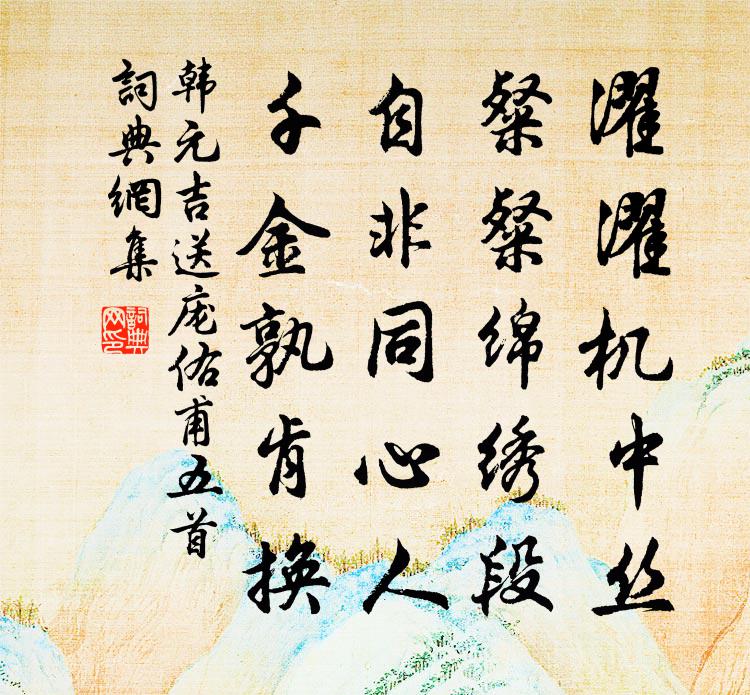 濯濯机中丝
粲粲绵绣段
自非同心人
千金孰肯换
韩元吉送庞佑甫五首
词典網集
詞典
网印